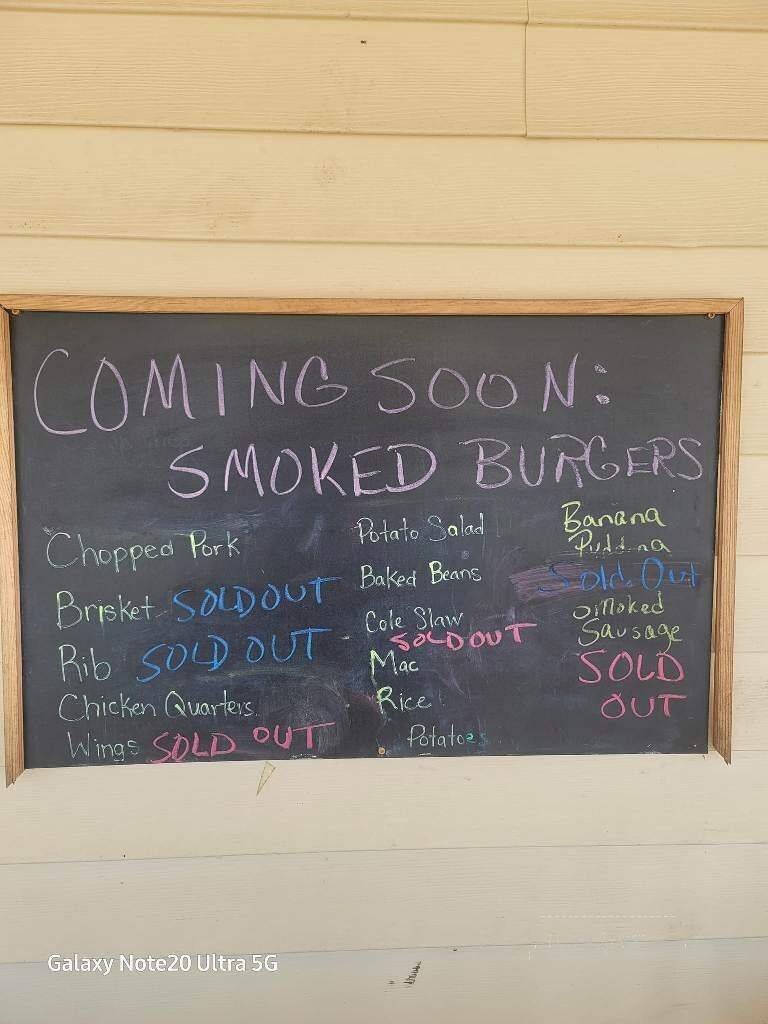 COMING SOON:
SMOKED BURGERS
Chopped Pork
Brisket SOLD OUT
Rib SOLD OUT
Chicken Quarters
Wings SOLD OUT
Potato Salad
Baked Beans
Cole Slaw
SOLD OUT
Mac
Rice
Potatoes
Banana
Pudding
Sold Out
Smoked
Sausage
SOLD
OUT
Galaxy Note20 Ultra 5G